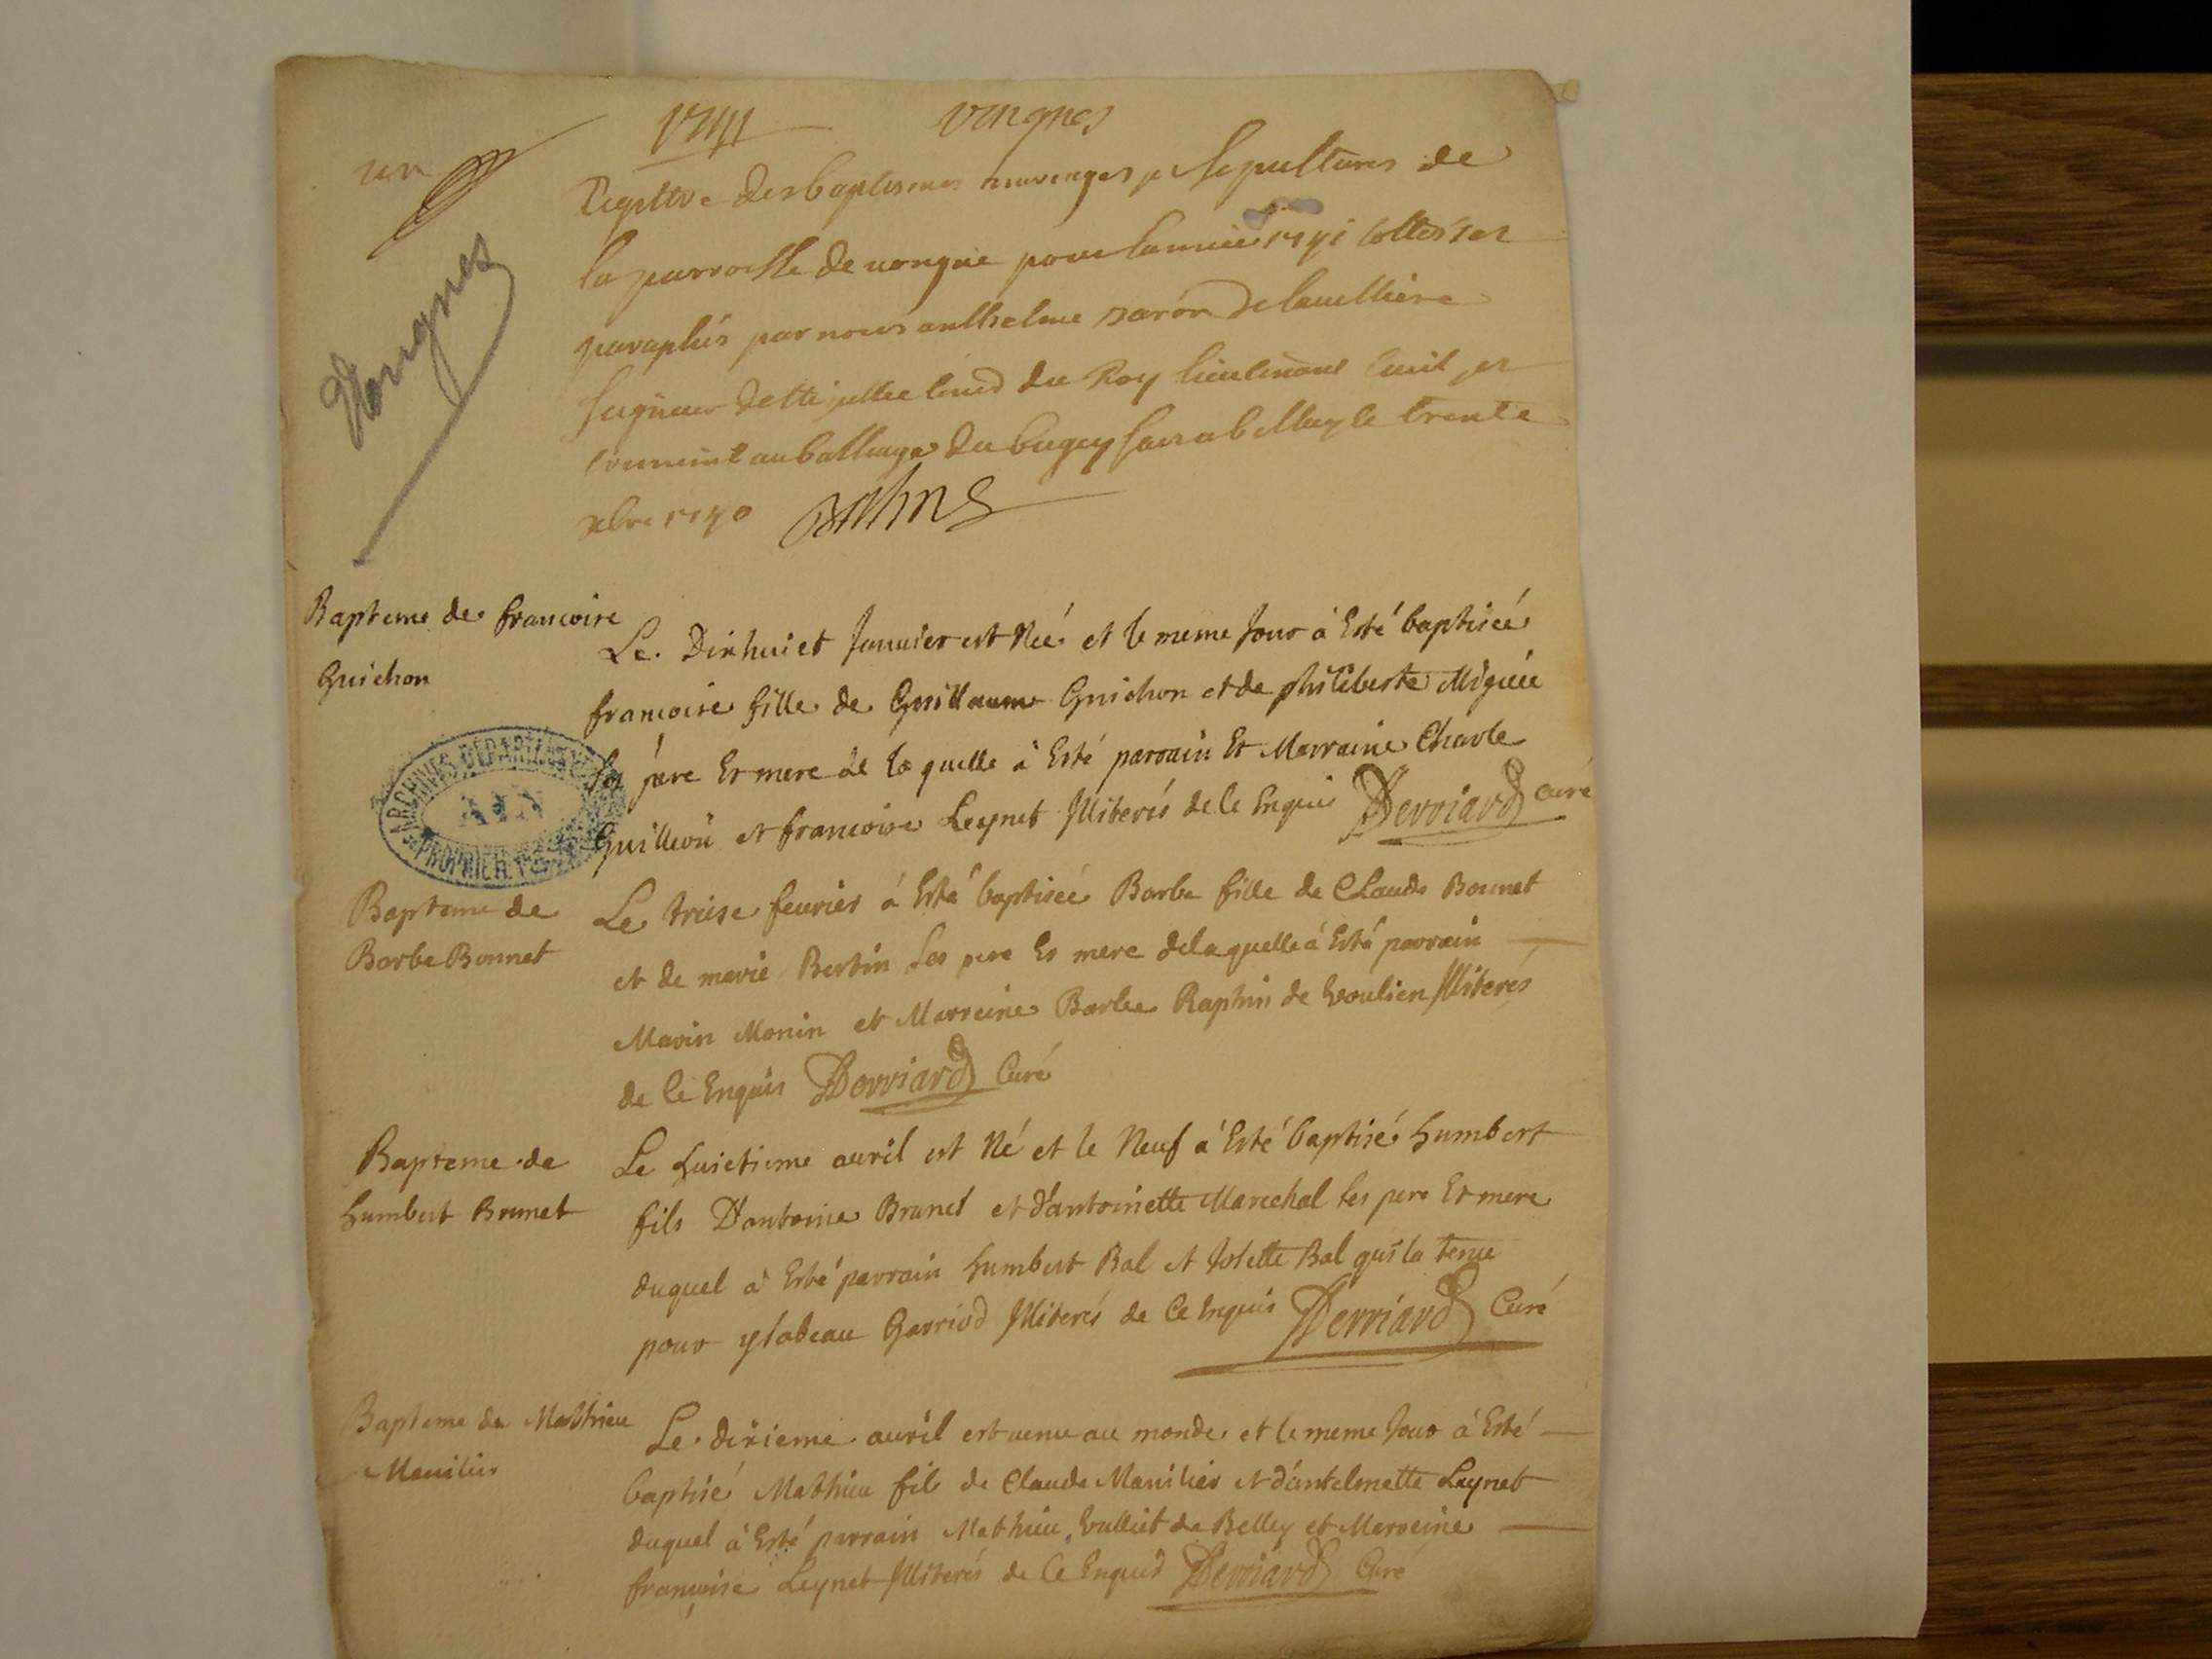 un
1741 vongnes
Vongnes
Registre des baptesmes mariages et sepultures de
la parroisse de vongne pour lannée 1741 cottés et
paraphés par nous anthelme baron de
seigneur du Roy lieutenant civil et
criminel au balliage du bugey fait a belley le trente
xbre 1740
Bapteme de francoise
Guichon
Le Dixhuiet Janvier est Née et le meme Jour à Esté baptiseé
francoise fille de Guillaume Guichon et de philiberte Migieu
ses pere Et mere de la quelle à Esté parrain Et Marraine Charle
Guilleon et francoise Leynet Illiterés de ce Enquis Derriard curé
ARCHIVES DEPARTEMENTALES
AIN
PROPRIÉTÉ
Bapteme de
Barbe Bonnet
Le treise feurier à Esté baptiseé Barbe fille de Claude Bonnet
et de marie Bertin ses pere Et mere de laquelle à Esté parrain
Marin Monin et Marreine Barbe Raphin de Illiterés
de ce Enquis Derriard Curé
Bapteme de
humbert Brunet
Le huictieme auril est Né et le Neuf à Esté baptisé humbert
fils D'antoine Brunet et d'antoinette Marechal ses pere Et mere
duquel à Esté parrain humbert Bal et Josette Bal qui la tenu
pour ysabeau Garriod Illiterés de Ce Enquis Derriard Curé
Bapteme de Matthieu
Manilier
Le dixieme auril est uenu au monde et le meme Jour à Esté
baptisé Mathieu fils de Claude Manilier et d'antelmette Leynet
duquel à Esté parrain Mathieu Vulliet de Belley et Marreine
françoise Leynet Illiterés de Ce Enquis Derriard Curé